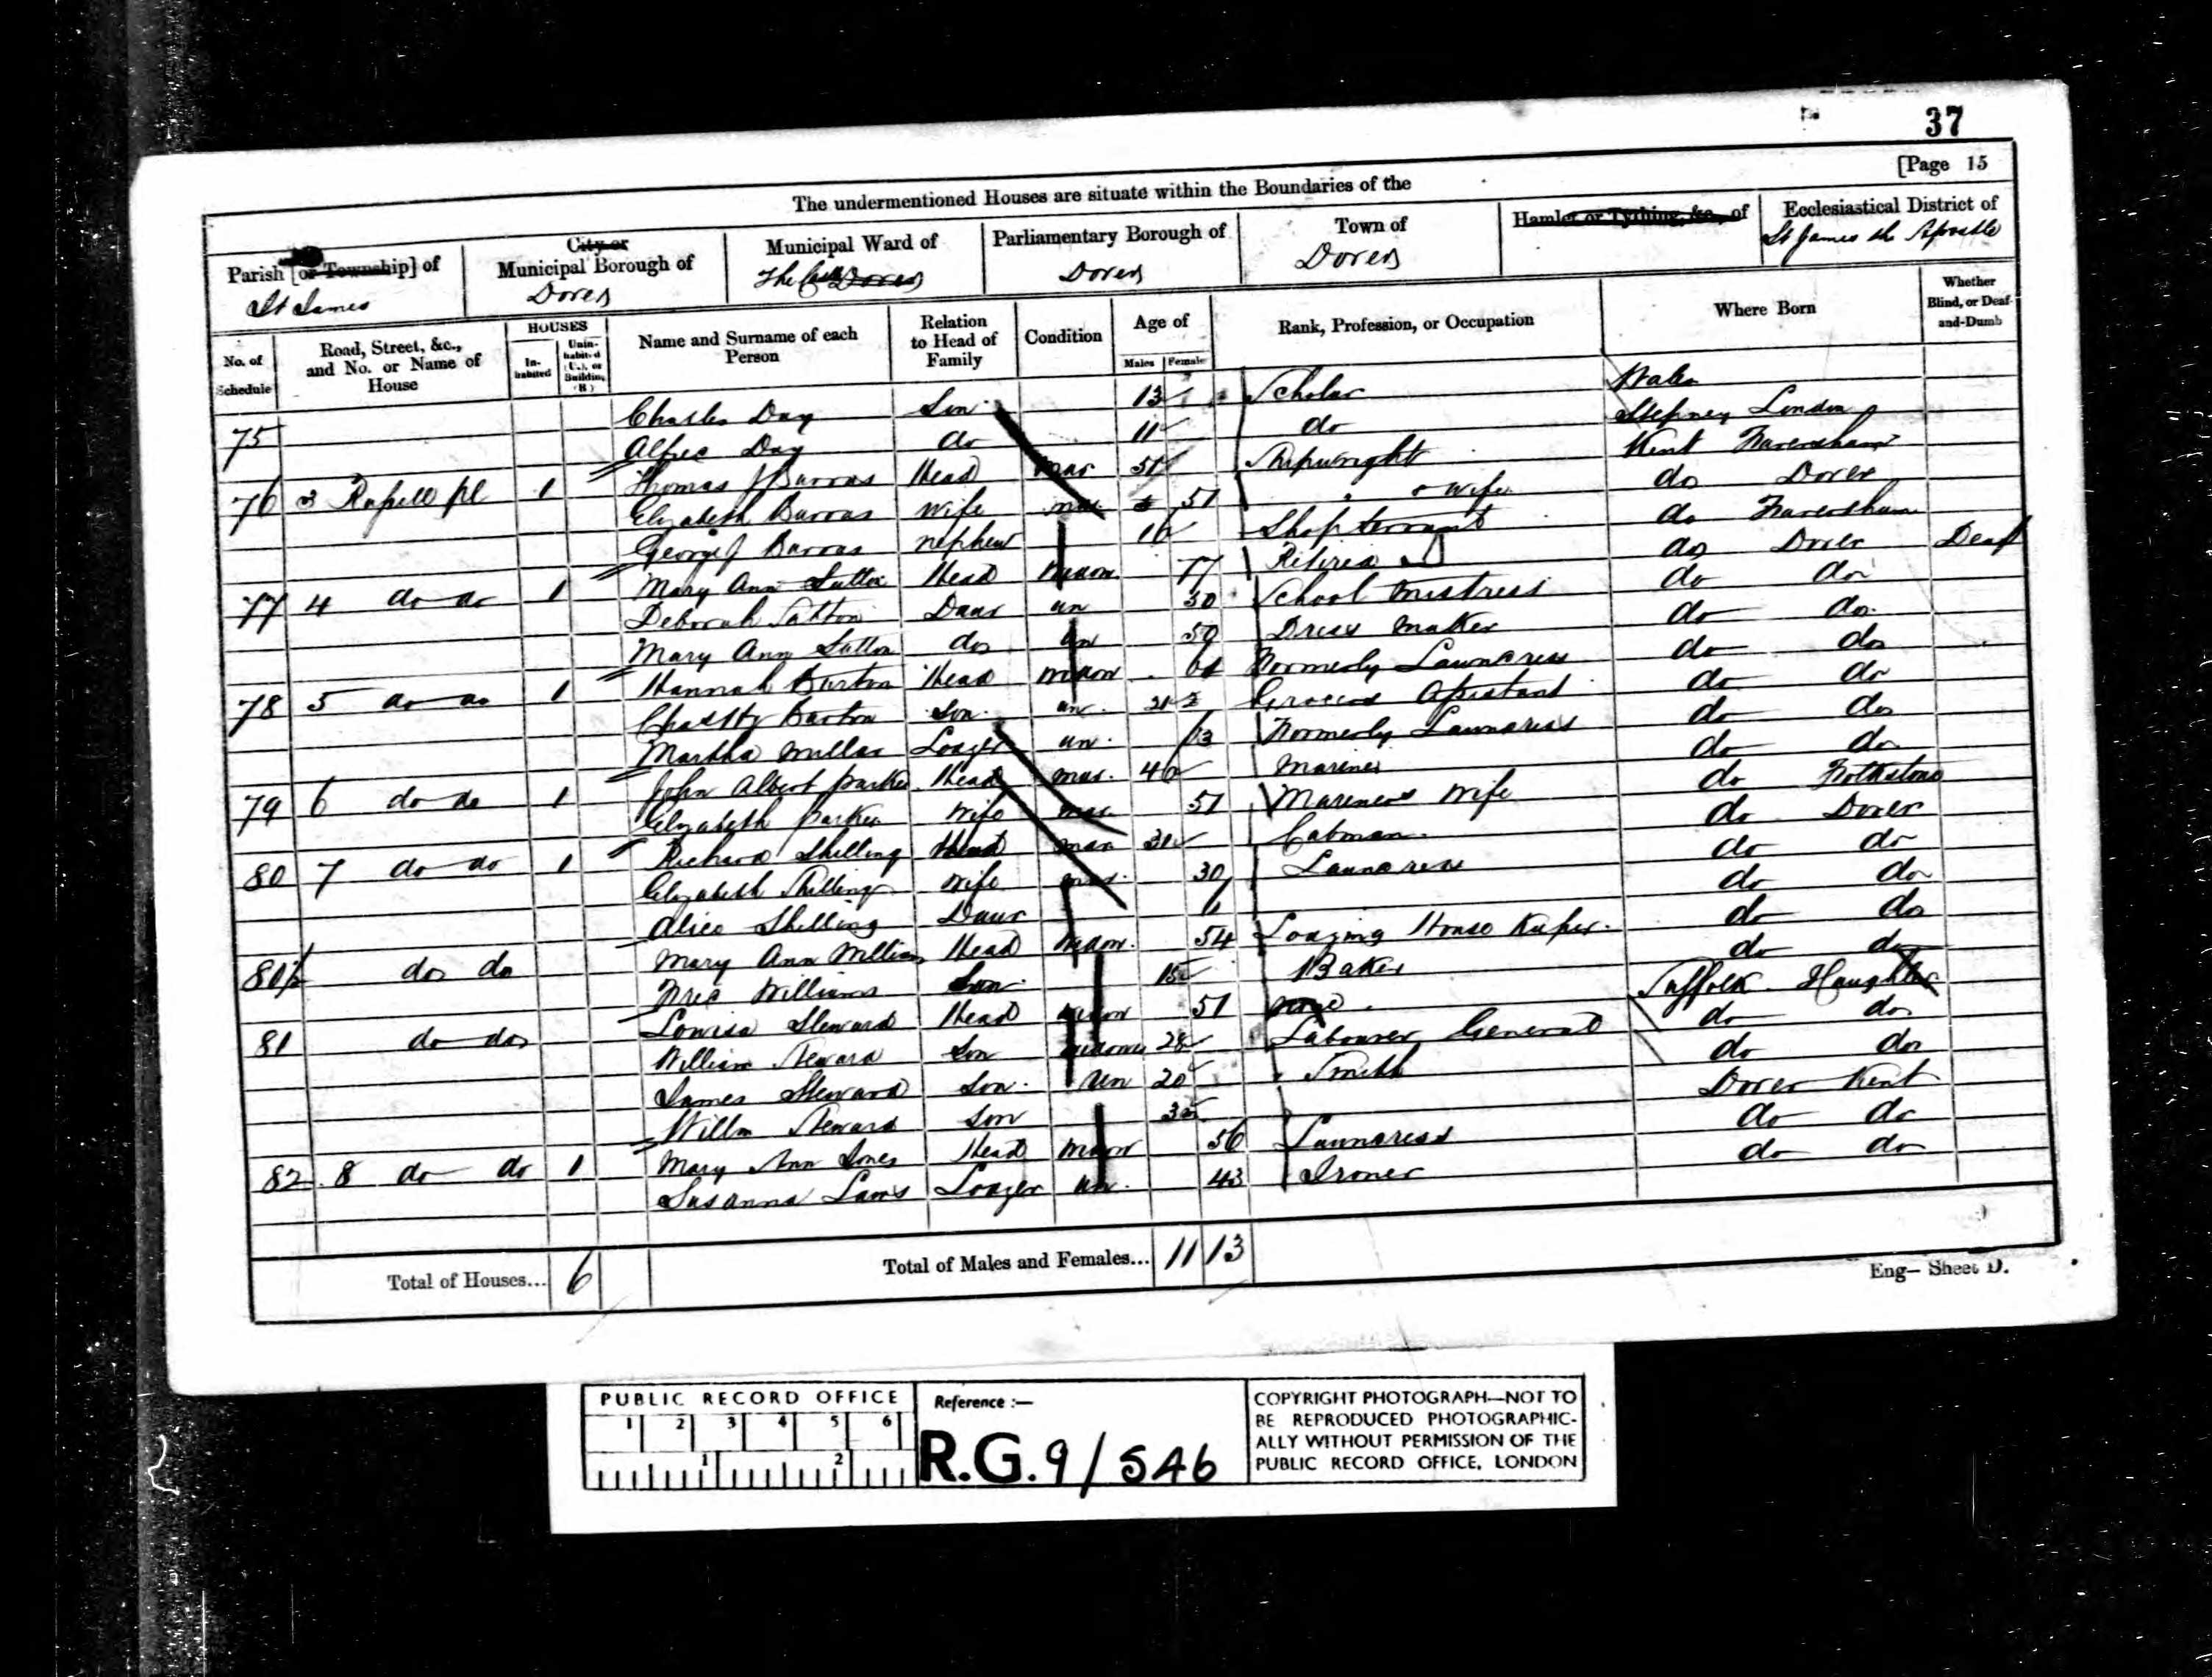 37
[Page 15
The undermentioned Houses are situate within the Boundaries of the
Parish [or Township] of
St James
City or Municipal Borough of
Dover
Municipal Ward of
The Dover
Parliamentary Borough of
Dover
Town of
Dover
Hamlet or Tything, &c., of
Ecclesiastical District of
St James the Apostle
No. of Schedule
Road, Street, &c., and No. or Name of House
HOUSES
In-habited
Unin-habited (U.), or Building (B)
Name and Surname of each Person
Relation to Head of Family
Condition
Age of
Males Females
Rank, Profession, or Occupation
Where Born
Whether Blind, or Deaf-and-Dumb
75 Charles Day Son 13 Scholar Wales
Alfred Day do 11 do Stepney London
76 3 Russell pl 1 Thomas J Burras Head Mar 51 Shipwright Kent Faversham
Elizabeth Burras Wife mar 51 wife do Dover
George J Burras nephew 16 Shop servant do Faversham
77 4 do do 1 Mary Ann Sutton Head Widow 77 Retired do Dover Deaf
Deborah Sutton Daur un 30 School mistress do do
Mary Ann Sutton do un 50 Dress maker do do
78 5 do do 1 Hannah Burton Head widow 61 Formerly Laundress do do
Burton Son un 21 Grocers Assistant do do
Martha Millar Lodger un 63 Formerly Laundress do do
79 6 do do 1 John Albert Parker Head mar 40 Mariner do do
Elizabeth Parker Wife mar 51 Mariners Wife do Folkstone
80 7 do do 1 Richard Skilling Head mar 31 Cabman do Dover
Elizabeth Skilling Wife mar 30 Laundress do do
Alice Skilling Daur 6 do do
80½ do do Mary Ann Williams Head Widow 54 Lodging House Keeper do do
Fred Williams Son 15 Baker do do
81 do do Louisa Steward Head widow 51 none Suffolk Haughley
William Steward Son widower 28 Labourer General do do
James Steward Son Un 20 Smith do do
Willm Steward Son 3 Dover Kent
82 8 do do 1 Mary Ann Jones Head widow 56 Laundress do do
Susanna Laws Lodger un 43 Ironer do do
Total of Houses... 6
Total of Males and Females... 11 13
Eng— Sheet D.
PUBLIC RECORD OFFICE
1 2 3 4 5 6
1 2
Reference :—
R.G. 9/546
COPYRIGHT PHOTOGRAPH—NOT TO
BE REPRODUCED PHOTOGRAPHIC-
ALLY WITHOUT PERMISSION OF THE
PUBLIC RECORD OFFICE, LONDON